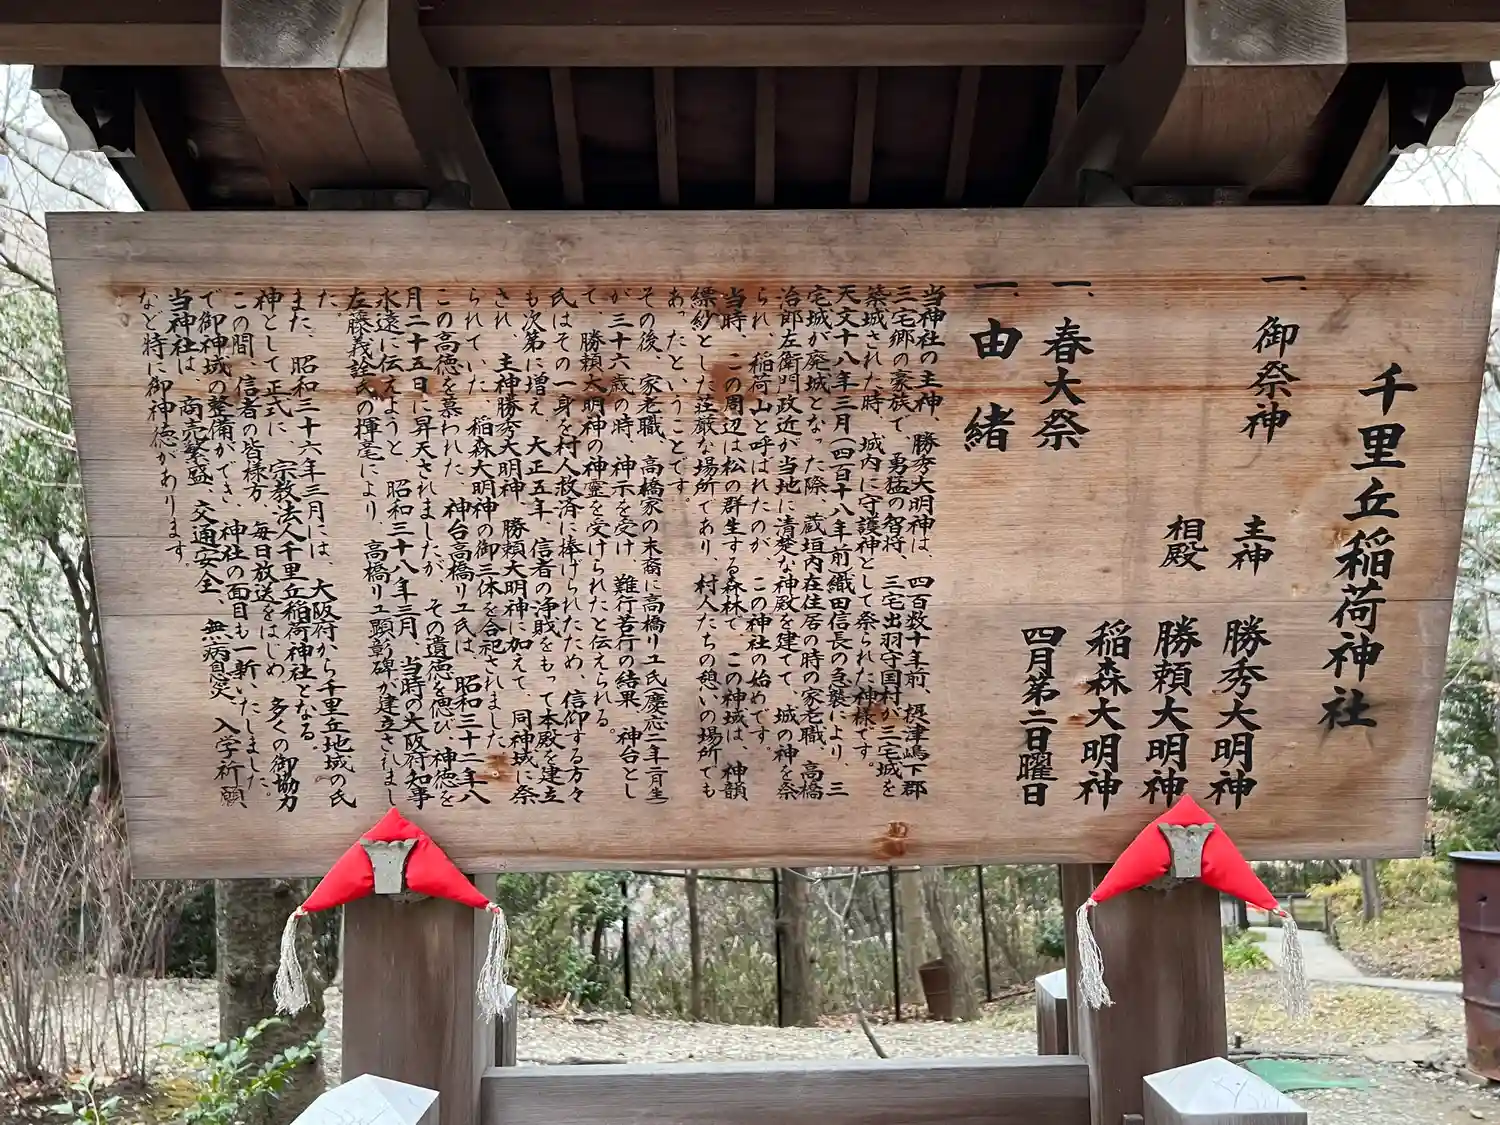 千里丘稲荷神社
一、御祭神
主神 勝秀大明神
相殿 勝頼大明神
稲森大明神
一、春大祭 四月第二日曜日
一、由緒
当神社の主神、勝秀大明神は、四百数十年前、摂津嶋下郡
三宅郷の豪族で、勇猛の智将、三宅出羽守国村が三宅城を
築城された時、城内に守護神として祭られた神様です。
天文十八年三月(四百十八年前)織田信長の急襲により、三
宅城が廃城となった際、蔵垣内在住居の時の家老職、高橋
治郎左衛門政近が当地に清楚な神殿を建てて、城の神を祭
られ、稲荷山と呼ばれたのが、この神社の始めです。
当時、この周辺は松の群生する森林で、この神域は、神韻
縹紗とした荘厳な場所であり、村人たちの憩いの場所でも
あったということです。
その後、家老職、高橋家の末裔に高橋リユ氏慶応二年二月生
が三十六歳の時、神示を受け 難行苦行の結果、神台とし
て、勝頼大明神の神霊を受けられたと伝えられる。
氏はその一身を村人救済に捧げられたため、信仰する方々
も次第に増え、大正五年、信者の浄財をもって本殿を建立
され、主神勝秀大明神、勝頼大明神に加えて、同神域に祭
られていた、稲森大明神の御三体を合祀されました。
この高徳を慕われた、神台高橋リユ氏は、昭和三十二年八
月二十五日に昇天されましたが、その遺徳を偲び、神徳を
永遠に伝えようと、昭和三十八年三月、当時の大阪府知事
左藤義詮氏の揮毫により、高橋リユ顕彰碑が建立されまし
た。
また、昭和三十六年三月には、大阪府から千里丘地域の氏
神として正式に、宗教法人千里丘稲荷神社となる。
この間、信者の皆様方、毎日放送をはじめ、多くの御協力
で御神域の整備ができ、神社の面目も一新いたしました。
当神社は、商売繁盛、交通安全、無病息災、入学祈願
など特に御神徳があります。